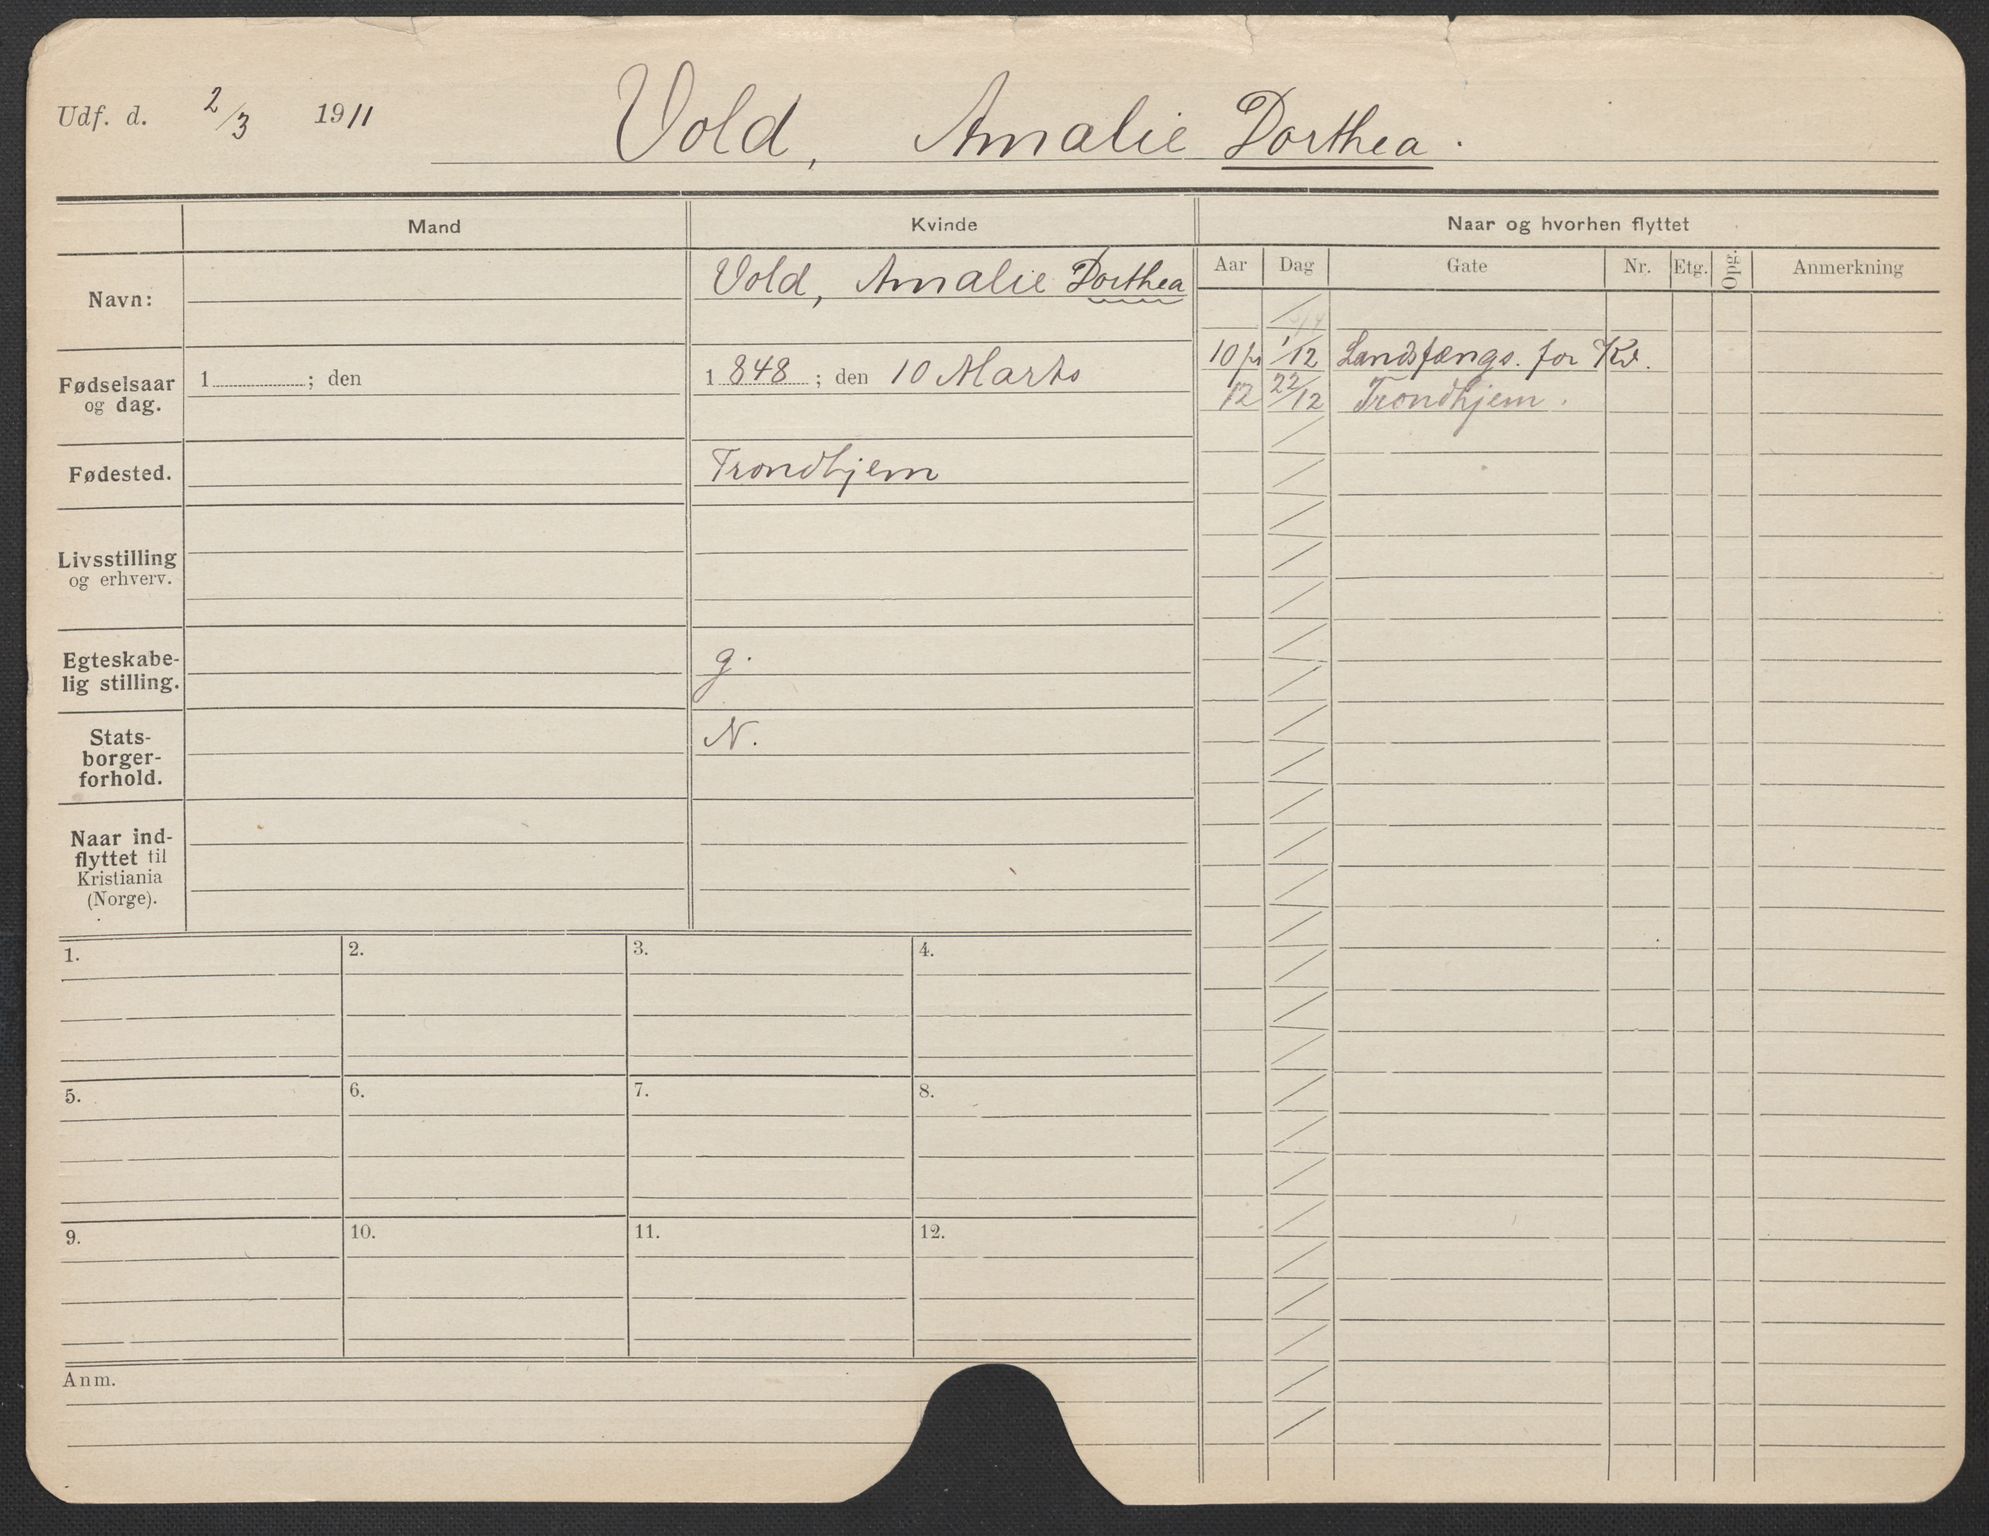 Udf. d. 2/3 1911
Vold, Amalie Dorthea.
Mand
Kvinde
Naar og hvorhen flyttet
Aar
Dag
Gate
Nr.
Etg.
Opg.
Anmerkning
Navn:
Vold, Amalie Dorthea
Fødselsaar
og dag.
1 ; den
1 848 ; den 10 Marts
Fødested.
Trondhjem
Livsstilling
og erhverv.
Egteskabe-
lig stilling.
g.
Stats-
borger-
forhold.
N.
Naar ind-
flyttet til
Kristiania
(Norge).
10 1/12 Landsfængs. for Kv.
12 22/12 Trondhjem.
1.
2.
3.
4.
5.
6.
7.
8.
9.
10.
11.
12.
Anm.